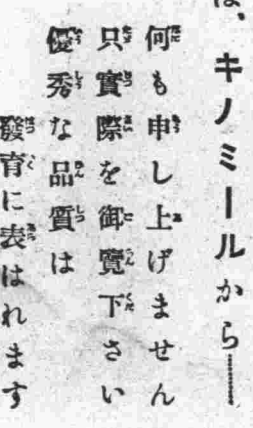 は、キノミールから……
何も申し上げません
只實際を御覽下さい
優秀な品質は
發育に表はれます